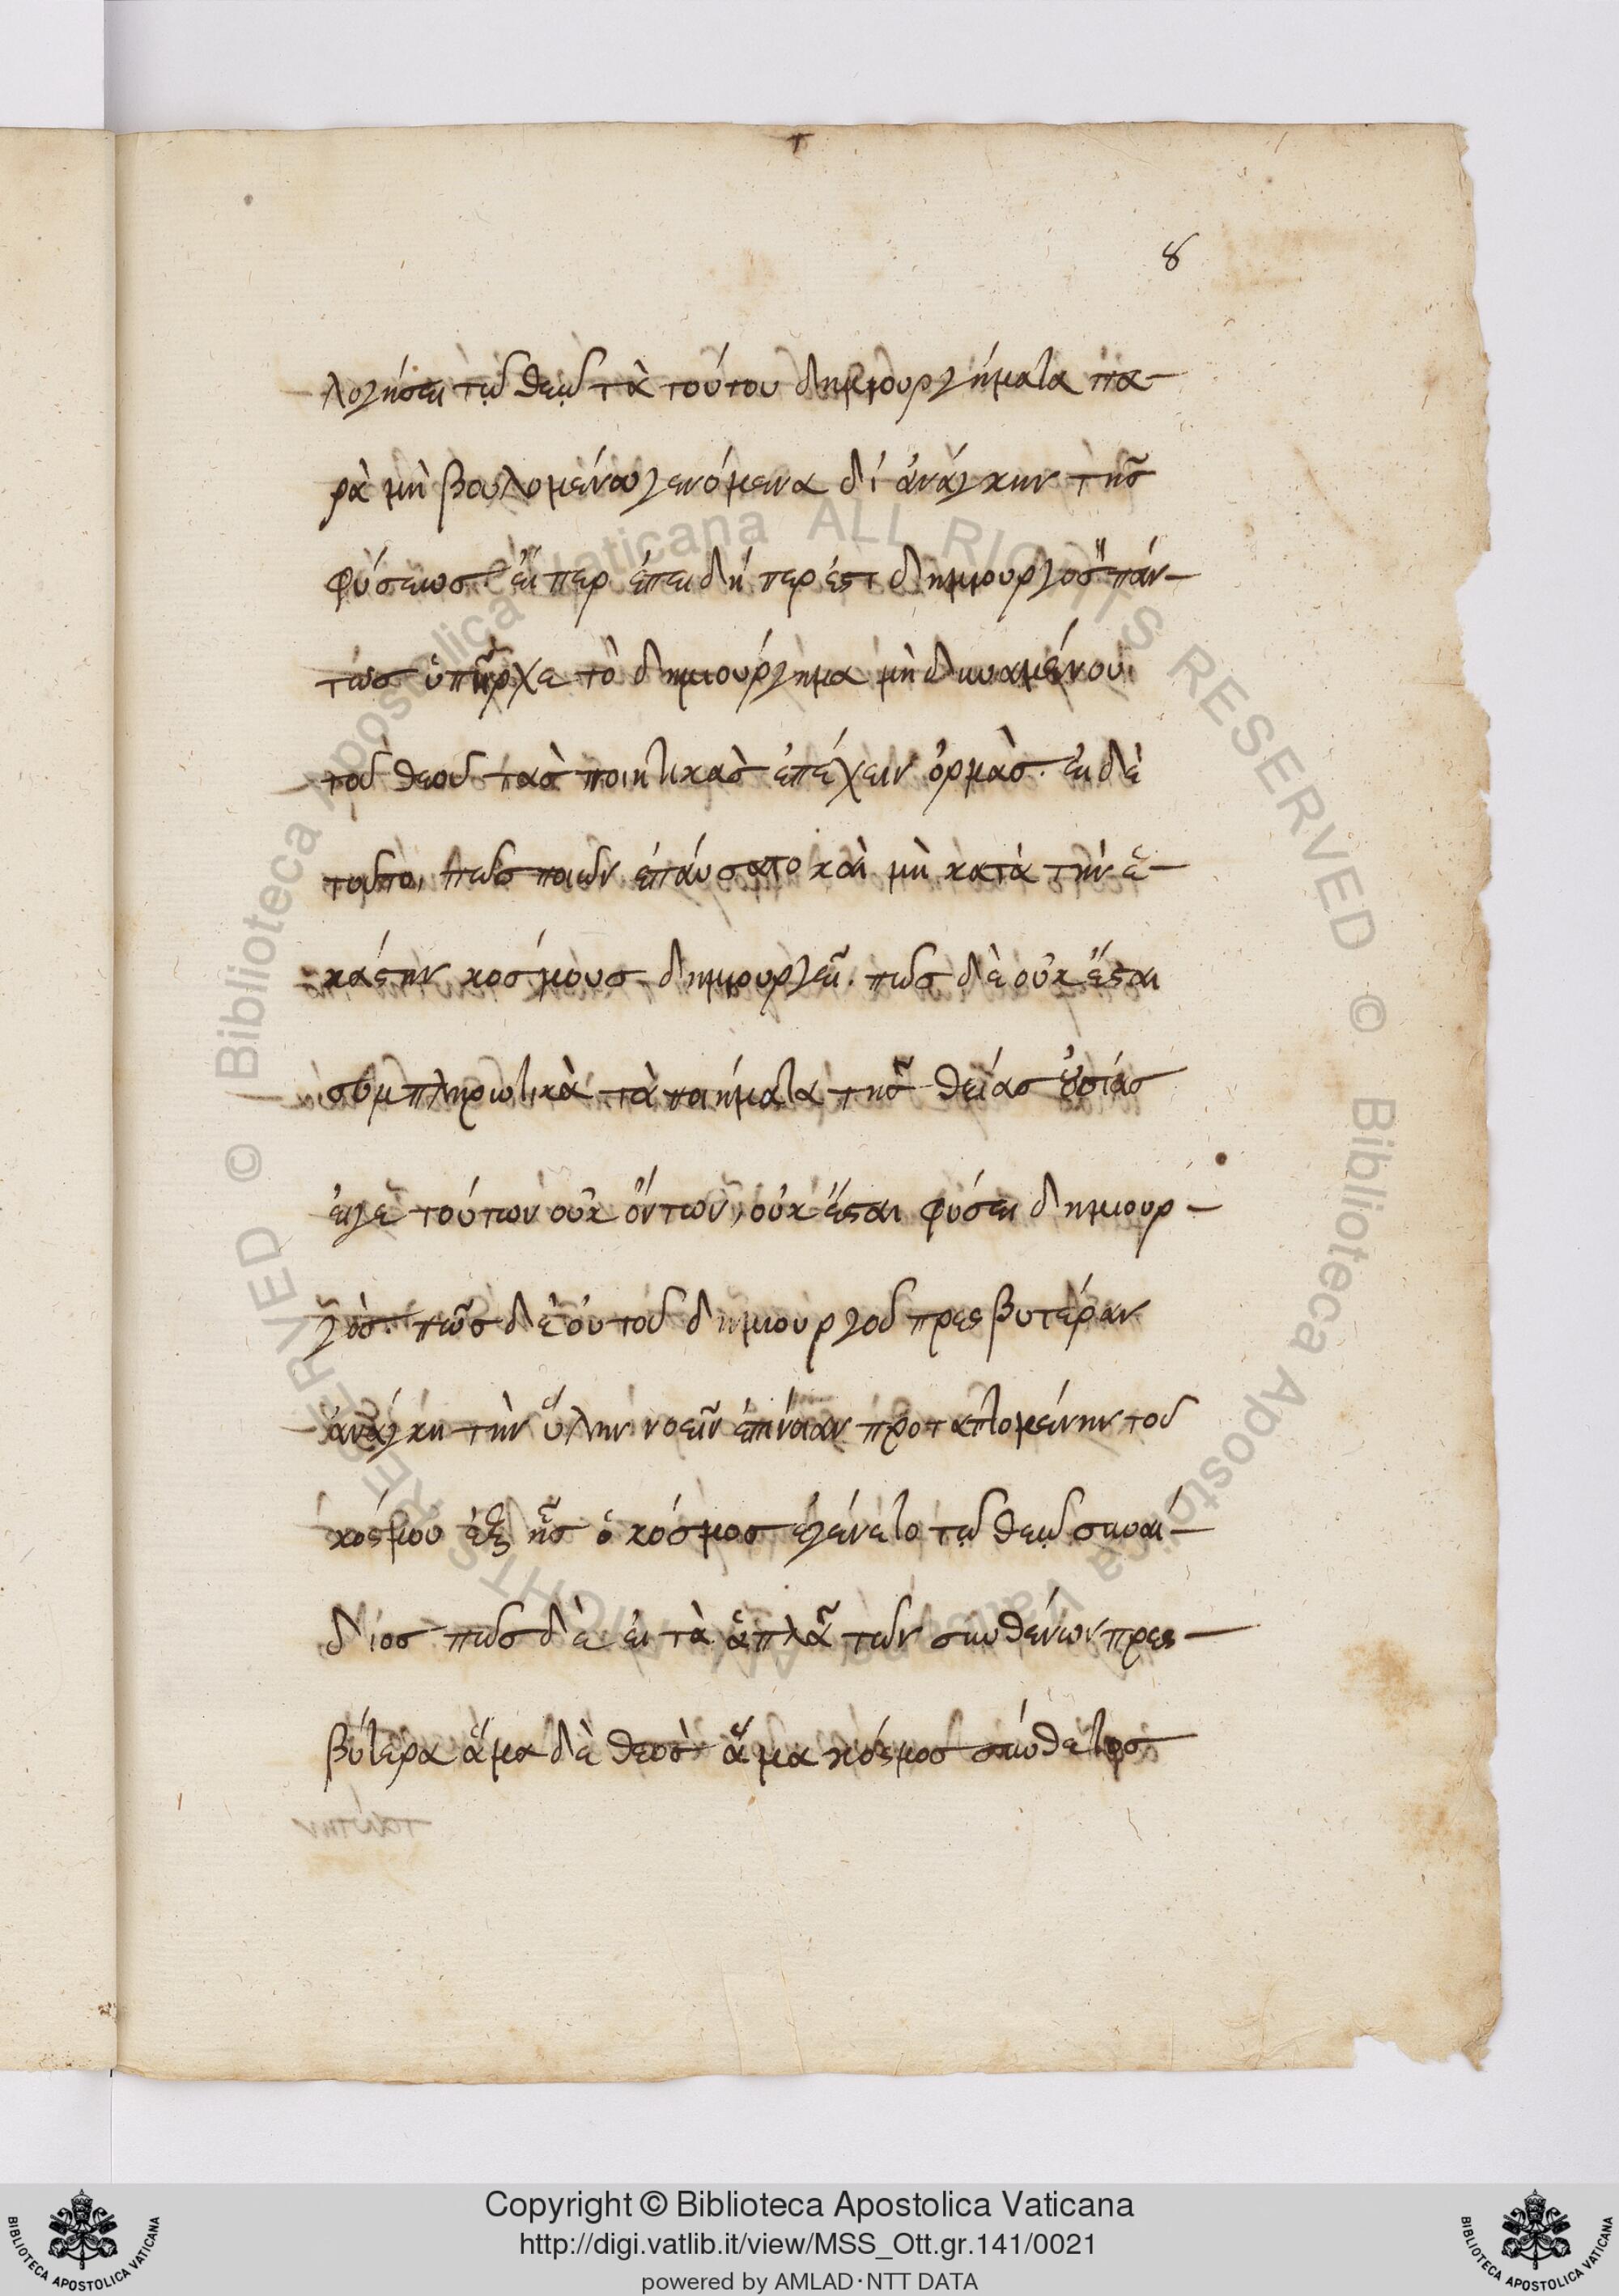 8
λογήσει τῷ θεῷ τὰ τούτου δημιουργήματα πα-
ρὰ μὴ βουλομένου γενόμενα δι' ἀνάγκην τῆς
φύσεως. εἴπερ ἐπειδήπερ ἐστι δημιουργὸς πάν-
τως ὑπῆρχε τὸ δημιούργημα μὴ δυναμένου
τοῦ θεοῦ τὰς ποιητικὰς ἐπέχειν ὁρμάς. εἰ δὲ
τοῦτο, πῶς ποιῶν ἐπαύσατο καὶ μὴ κατὰ τὴν ἑ-
κάστην κόσμους δημιουργεῖ. πῶς δὲ οὐκ ἔσται
συμπληρωτικὰ τὰ ποιήματα τῆς θείας οὐσίας
εἴγε τούτων οὐκ ὄντων, οὐκ ἔσται φύσει δημιουρ-
γός. πῶς δὲ οὐ τοῦ δημιουργοῦ πρεσβυτέραν
ἀνάγκη τὴν ὕλην νοεῖν ἐπίνοιαν προταττομένην τοῦ
κόσμου ἐξ ἧς ὁ κόσμος ἐγένετο τῷ θεῷ συναΐ-
διος πῶς δὲ εἰ τὰ ἁπλᾶ τῶν συνθέτων πρεσ-
βύτερα ἅμα δὲ θεὸς ἅμα κόσμος σύνθετος
Copyright © Biblioteca Apostolica Vaticana
http://digi.vatlib.it/view/MSS_Ott.gr.141/0021
powered by AMLAD·NTT DATA
BIBLIOTECA APOSTOLICA VATICANA
BIBLIOTECA APOSTOLICA VATICANA
© Biblioteca Apostolica Vaticana ALL RIGHTS RESERVED © Biblioteca Apostolica Vaticana ALL RIGHTS RESERVED